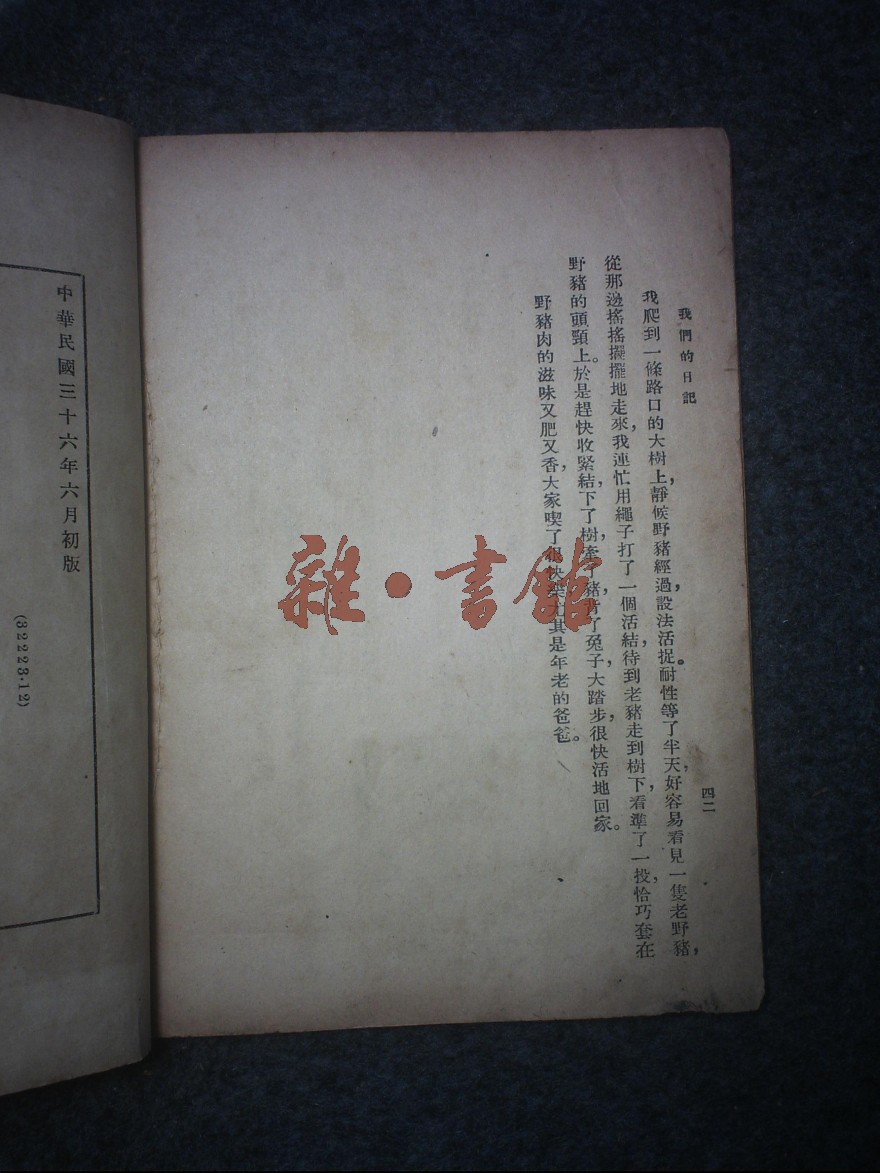 我們的日記
四二
我爬到一條路口的大樹上，靜候野豬經過，設法活捉。耐性等了半天，好容易看見一隻老野豬，
從那邊搖搖擺擺地走來，我連忙用繩子打了一個活結，待到老豬走到樹下，看準了一投，恰巧套在
野豬的頭頸上。於是趕快收緊結，下了樹，牽了豬，背了兔子，大踏步，很快活地回家。
野豬肉的滋味又肥又香，大家喫了很快樂，尤其是年老的爸爸。
中華民國三十六年六月初版
(32223·12)
雜·書館